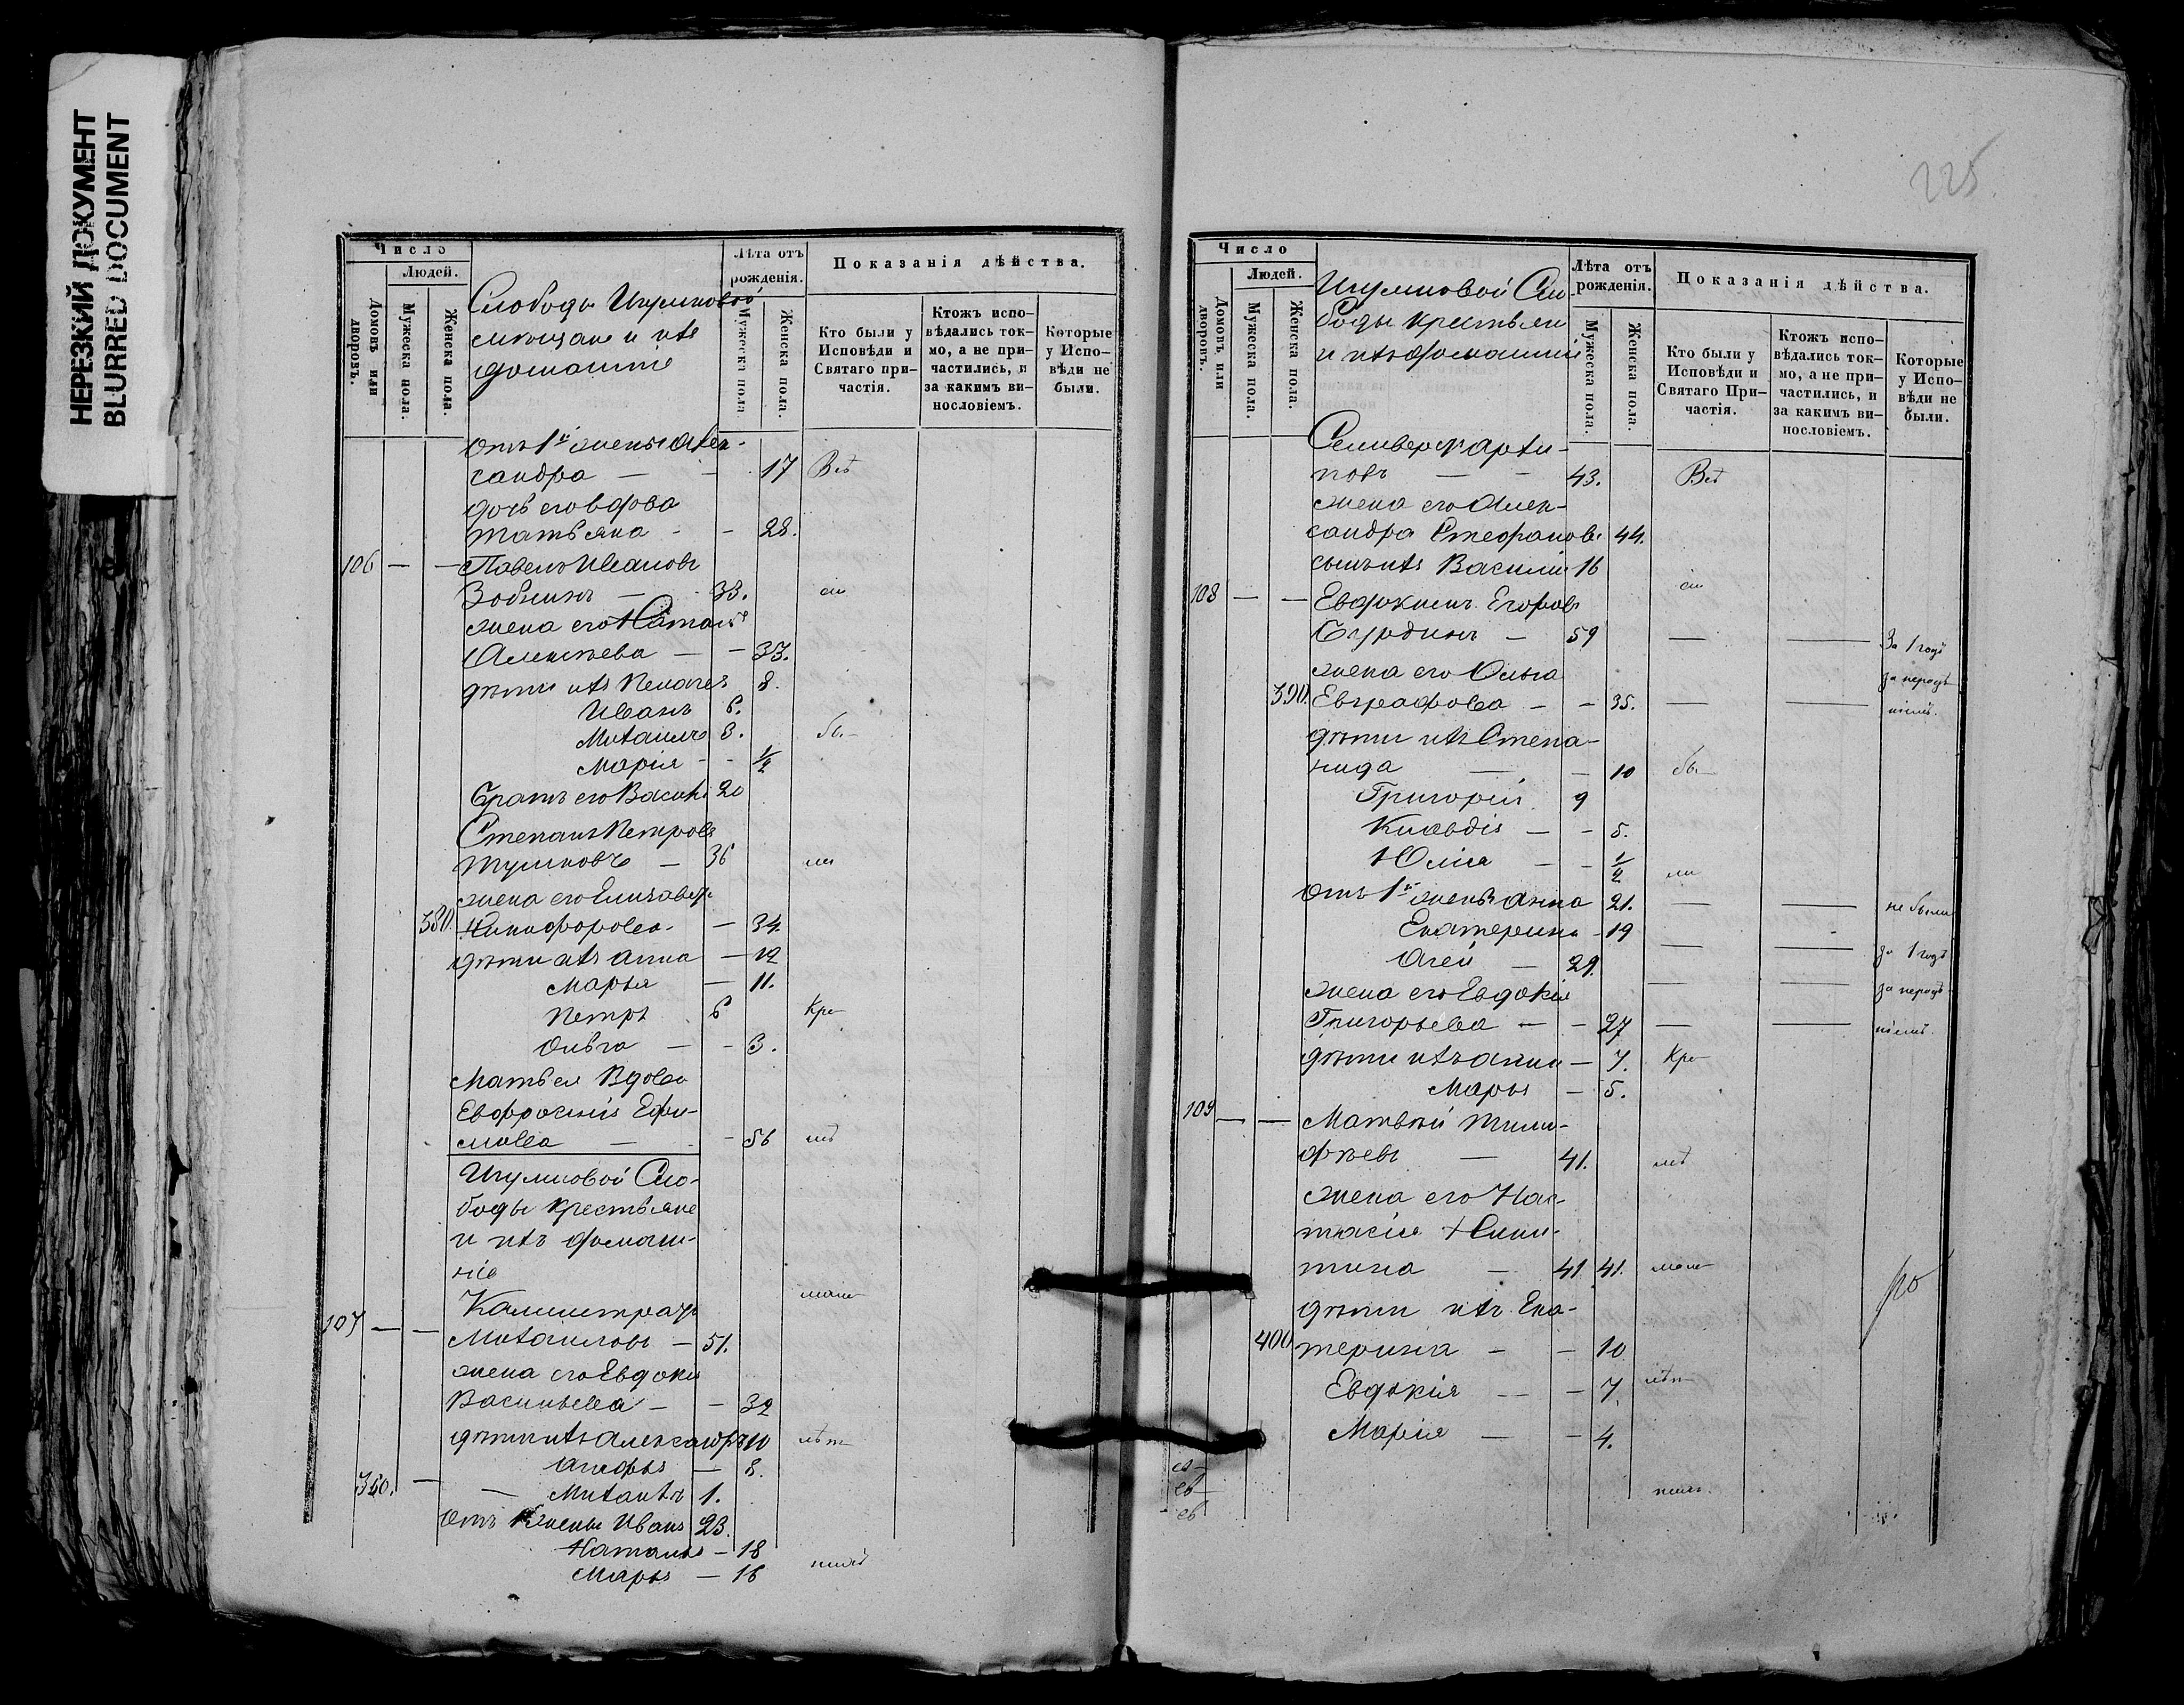 НЕРЕЗКИЙ ДОКУМЕНТ
BLURRED DOCUMENT
225
Число
Людей.
Домовъ или дворовъ.
Мужеска пола.
Женска пола.
Слободы
мѣщане и ихъ
домашніе
Лѣта отъ рожденія.
Мужеска пола
Женска пола.
Показанія дѣйства.
Кто были у Исповѣди и Святаго причастія.
Ктожъ исповѣдались токмо, а не причастились, и за какимъ винословіемъ.
Которые у Исповѣди не были.
отъ 1й жены Алек-
сандра — 17 Всѣ
дочь его вдова
Татьяна - - 28.
106 — — Павелъ Ивановъ
— 33.
жена его Наталья
Алексѣева — - 33.
дѣти ихъ 8.
Иванъ 6.
Михаилъ 3. бы-
Марія - - ½
Братъ его 20
Степанъ Петровъ
— 36 ли
жена его Елизавет
380. Никифорова - — 34
дѣти ихъ Анна — 12
Марья — 11.
Петръ 6 Кре-
Ольга — - 3.
Мать ея Вдова
Евфросинія Ефи-
мова — - 56
Слo-
боды Крестьяне
и ихъ домаш-
ніе
107 — — Каллистратъ
Михаиловъ — 51.
жена его Евдокія
Васильева — - 32
дѣти ихъ Александръ 10
— 8.
— Михаилъ 1.
отъ жены Иванъ 23.
Наталья — 18
Марья — 16
Число
Людей.
Домовъ или дворовъ.
Мужеска пола.
Женска пола.
Сло
боды крестьян
и ихъ домашніе
Лѣта отъ рожденія.
Мужеска пола.
Женска пола.
Показанія дѣйства.
Кто были у Исповѣди и Святаго Причастія.
Ктожъ исповѣдались токмо, а не причастились, и за какимъ винословіемъ.
Которые у Исповѣди не были.
Селиверстъ
— - 43. Всѣ
жена его Алек-
сандра Стефанова 44.
сынъ ихъ Василій 16
108 — — Евдокимъ Егоровъ
— 59 — — За 1 годъ
жена его Ольга за нерадѣ-
390. Евграфова — - 35. — — ніемъ.
дѣти ихъ Степа-
нида — - 10 бы-
Григорій 9
Клавдія — - 5.
Юлія — - ½ ли
отъ 1й жены Анна 21. — — не были
Екатерина - 19 — — за 1 годъ
Агей — 29. — — за нерадѣ-
жена его Евдокія
Григорьева — - 27 — — ніемъ.
дѣти ихъ Анна — 7. Кре-
Марья — 5.
109 — — Матвѣй Тимо-
фѣевъ — 41.
жена его Нас-
тасія Ники-
тина — 41 41.
дѣти ихъ Ека-
400 терина — - 10
Евдокія — - 7.
Марія — - 4.